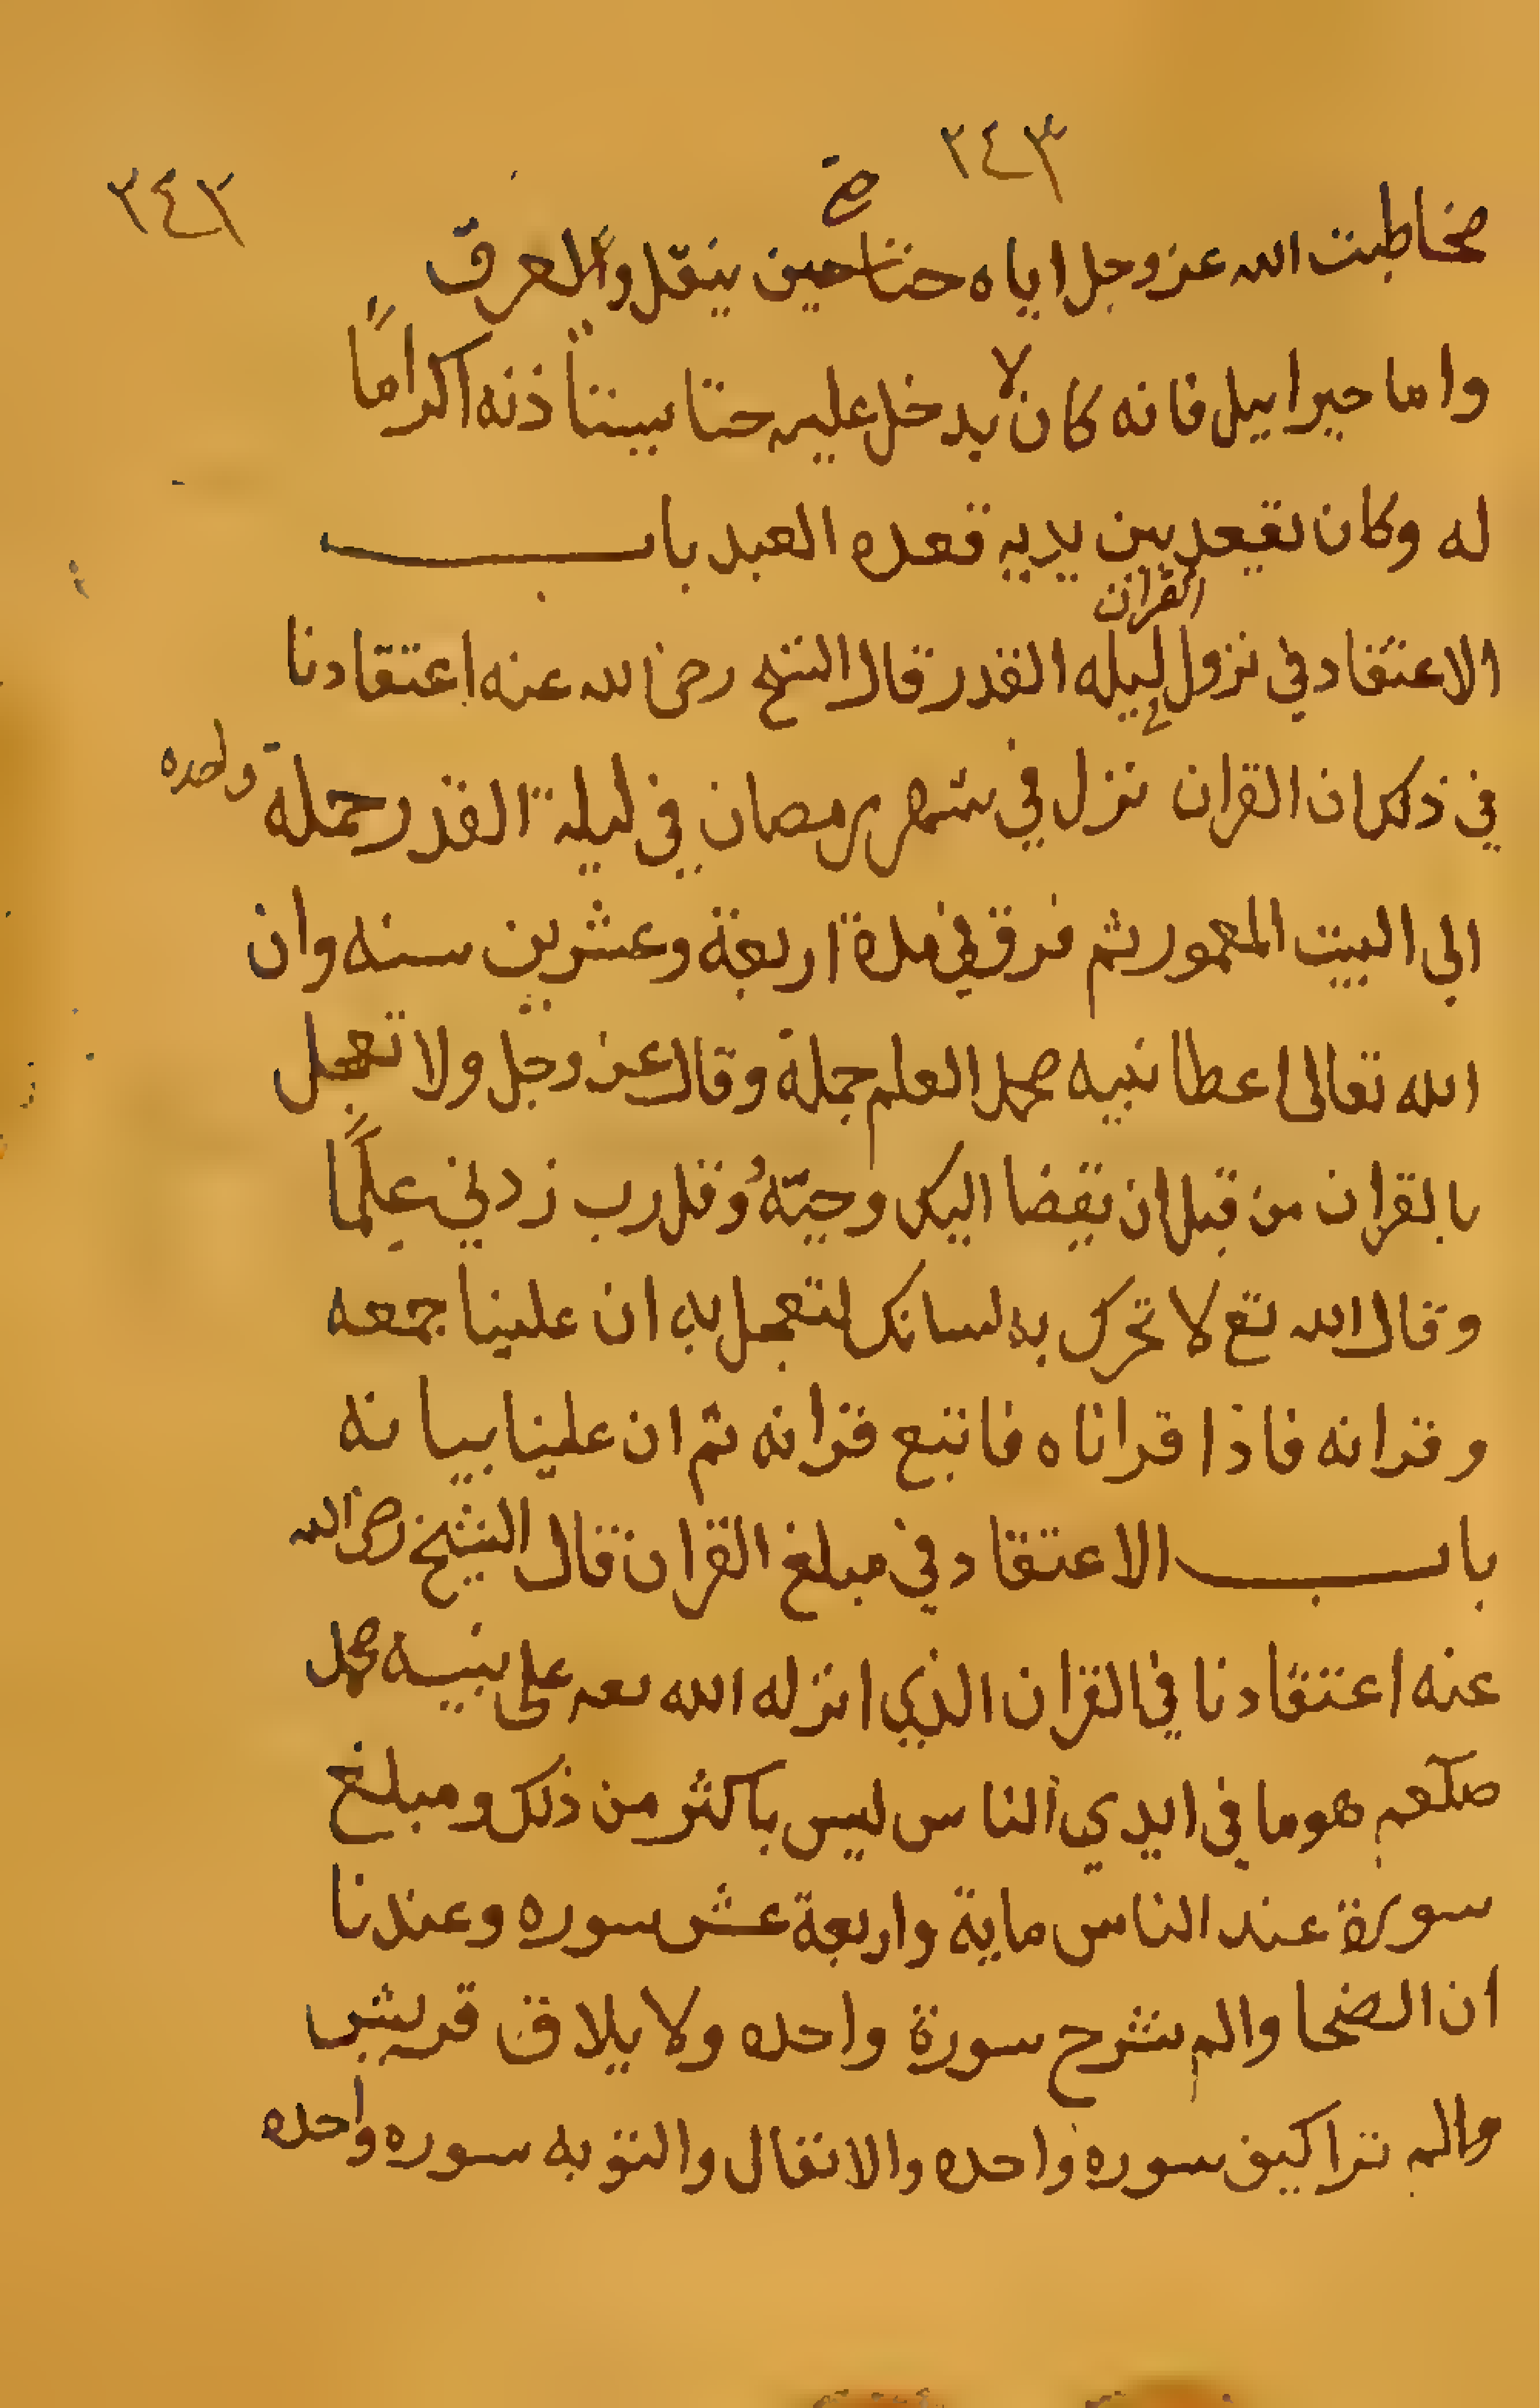 ٣٤٣
٣٤٣
مخاطبت الله عز وجل اياه حتا حين ينقل والعرق
واما جبراييل فانه كان لا يدخل عليه حتا يستاذنه اكراماً
له وكان يقعد بين يديه قعده العبد باب
الاعتقاد في نزول القران ليله القدر قال الشيخ رضي الله عنه اعتقادنا
في ذلك ان القران نزل في شهر رمضان في ليلة القدر جملة واحده
الى البيت المعمور ثم فرق في مدة اربعة وعشرين سنه وان
الله تعالى اعطا نبيه محمد العلم جملة وقال عز وجل ولا تعجل
بالقران من قبل ان يقضا اليك وحيهُ وقل رب زدني علماً
وقال الله تع لا تحرك به لسانك لتعجل به ان علينا جمعه
وقرانه فاذا قراناه فاتبع قرانه ثم ان علينا بيانه
باب الاعتقاد في مبلغ القران قال الشيخ رضي الله
عنه اعتقادنا في القران الذي انزله الله تعه على نبيه محمد
صلعم هو ما في ايدي الناس ليس باكثر من ذلك ومبلغ
سورة عند الناس ماية واربعة عشر سوره وعندنا
ان الضحا والم نشرح سورة واحده ولايلاف قريش
والم تراكيف سوره واحده والانفال والتوبه سوره واحده